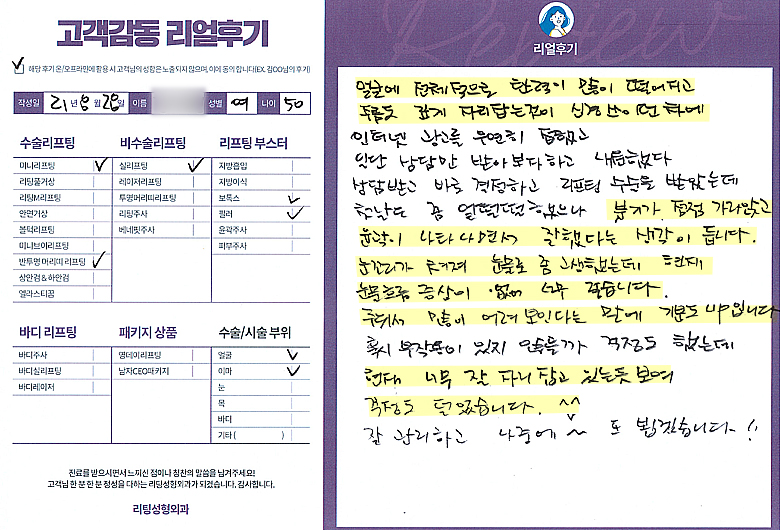 고객감동 리얼후기
해당 후기 온/오프라인에 활용 시 고객님의 성함은 노출되지 않으며, 이에 동의 합니다(EX. 김OO님의 후기)
작성일 21년 8월 28일 이름 성별 여 나이 50
수술리프팅
미니리프팅
리팅풀거상
리팅M리프팅
안면거상
볼턱리프팅
미니브이리프팅
반투명 머리띠 리프팅
상안검 & 하안검
엘라스티꿈
비수술리프팅
실리프팅
레이저리프팅
투명머리띠리프팅
리팅주사
베네핏주사
리프팅 부스터
지방흡입
지방이식
보톡스
필러
윤곽주사
피부주사
바디 리프팅
바디주사
바디실리프팅
바디레이저
패키지 상품
명데이리프팅
남자CEO패키지
수술/시술 부위
얼굴
이마
눈
목
바디
기타 ( )
진료를 받으시면서 느끼신 점이나 칭찬의 말씀을 남겨주세요!
고객님 한 분 한 분 정성을 다하는 리팅성형외과가 되겠습니다. 감사합니다.
리팅성형외과
Review
리얼후기
얼굴에 전체적으로 탄력이 많이 떨어지고
주름도 깊게 자리잡는것이 신경쓰이던 차에
인터넷 광고를 우연히 접했고
일단 상담만 받아보자하고 내원했다
상담받고 바로 결정하고 리프팅 수술을 받았는데
첫날은 좀 얼떨떨했으나 붓기가 점점 가라앉고
윤곽이 나타나면서 잘했다는 생각이 듭니다.
눈꼬리가 쳐져 눈물로 좀 고생했는데 현재
눈물흐름 증상이 없어 너무 좋습니다.
주위서 많이 어려보인다는 말에 기분도 UP입니다
혹시 부작용이 있지 않을까 걱정도 했는데
현재 너무 잘 자리 잡고 있는듯 보여
걱정도 덜었습니다. ^^
잘 관리하고 나중에~ 또 뵙겠습니다!!